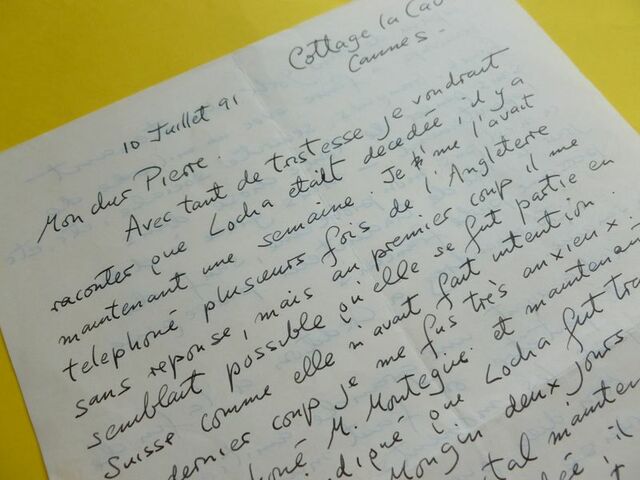 Cottage la Cau
Cannes -
10 Juillet 91
Mon cher Pierre.
Avec tant de tristesse je voudrait
raconter que Locha etait decedée, il y a
maintenant une semaine. Je me l'avait
telephoné plusieurs fois de l'Angleterre
sans reponse, mais au premier coup il me
semblait possible qu'elle se fut partie en
Suisse comme elle n'avait fait intention.
dernier coup je me fus très anxieux.
honé M. Montegue. et maintenant
diqué que Locha fut tra
Mongin deux jours
tal mainten
il